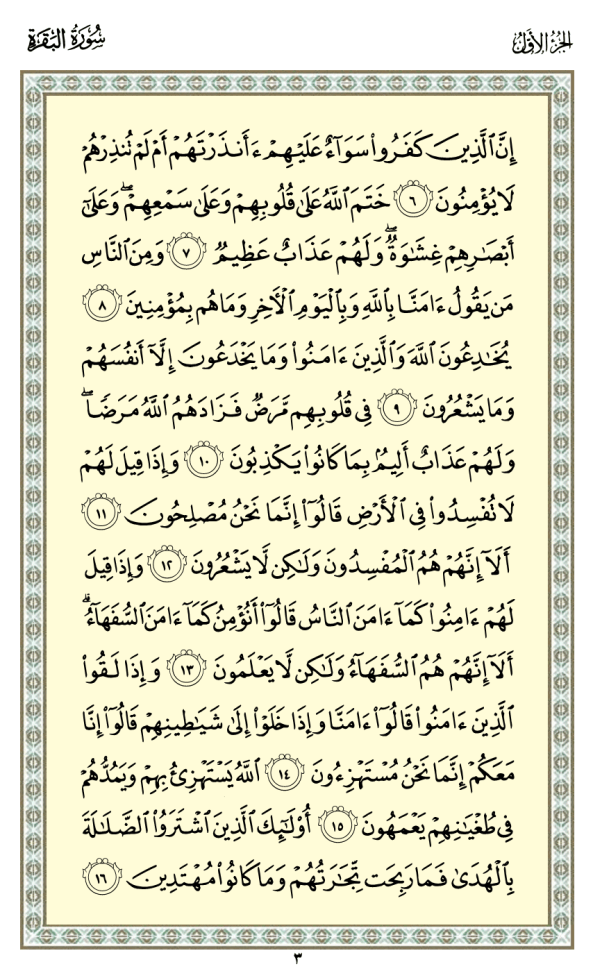 الجزء الأول
سورة البقرة
إِنَّ ٱلَّذِينَ كَفَرُوا۟ سَوَآءٌ عَلَيْهِمْ ءَأَنذَرْتَهُمْ أَمْ لَمْ تُنذِرْهُمْ
لَا يُؤْمِنُونَ ٦ خَتَمَ ٱللَّهُ عَلَىٰ قُلُوبِهِمْ وَعَلَىٰ سَمْعِهِمْ ۖ وَعَلَىٰٓ
أَبْصَـٰرِهِمْ غِشَـٰوَةٌ ۖ وَلَهُمْ عَذَابٌ عَظِيمٌ ٧ وَمِنَ ٱلنَّاسِ
مَن يَقُولُ ءَامَنَّا بِٱللَّهِ وَبِٱلْيَوْمِ ٱلْـَٔاخِرِ وَمَا هُم بِمُؤْمِنِينَ ٨
يُخَـٰدِعُونَ ٱللَّهَ وَٱلَّذِينَ ءَامَنُوا۟ وَمَا يَخْدَعُونَ إِلَّآ أَنفُسَهُمْ
وَمَا يَشْعُرُونَ ٩ فِى قُلُوبِهِم مَّرَضٌ فَزَادَهُمُ ٱللَّهُ مَرَضًا ۖ
وَلَهُمْ عَذَابٌ أَلِيمٌۢ بِمَا كَانُوا۟ يَكْذِبُونَ ١٠ وَإِذَا قِيلَ لَهُمْ
لَا تُفْسِدُوا۟ فِى ٱلْأَرْضِ قَالُوٓا۟ إِنَّمَا نَحْنُ مُصْلِحُونَ ١١
أَلَآ إِنَّهُمْ هُمُ ٱلْمُفْسِدُونَ وَلَـٰكِن لَّا يَشْعُرُونَ ١٢ وَإِذَا قِيلَ
لَهُمْ ءَامِنُوا۟ كَمَآ ءَامَنَ ٱلنَّاسُ قَالُوٓا۟ أَنُؤْمِنُ كَمَآ ءَامَنَ ٱلسُّفَهَآءُ ۗ
أَلَآ إِنَّهُمْ هُمُ ٱلسُّفَهَآءُ وَلَـٰكِن لَّا يَعْلَمُونَ ١٣ وَإِذَا لَقُوا۟
ٱلَّذِينَ ءَامَنُوا۟ قَالُوٓا۟ ءَامَنَّا وَإِذَا خَلَوْا۟ إِلَىٰ شَيَـٰطِينِهِمْ قَالُوٓا۟ إِنَّا
مَعَكُمْ إِنَّمَا نَحْنُ مُسْتَهْزِءُونَ ١٤ ٱللَّهُ يَسْتَهْزِئُ بِهِمْ وَيَمُدُّهُمْ
فِى طُغْيَـٰنِهِمْ يَعْمَهُونَ ١٥ أُو۟لَـٰٓئِكَ ٱلَّذِينَ ٱشْتَرَوُا۟ ٱلضَّلَـٰلَةَ
بِٱلْهُدَىٰ فَمَا رَبِحَت تِّجَـٰرَتُهُمْ وَمَا كَانُوا۟ مُهْتَدِينَ ١٦
٣